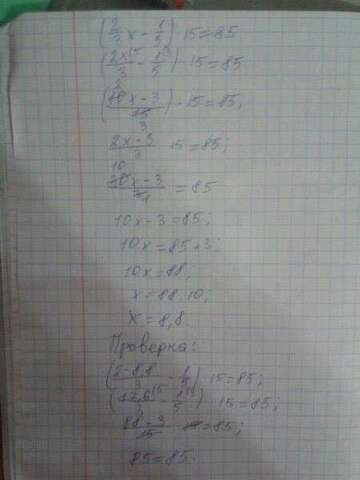 (2/3 x - 1/5) · 15 = 85
(2x/3 - 1/5) · 15 = 85
(10x - 3)/15 · 15 = 85;
(2x - 3)/3 15 = 85;
(10x - 3)/1 = 85
10x - 3 = 85;
10x = 85 + 3;
10x = 88,
x = 88:10;
x = 8,8.
Проверка:
(2·8,8/3 - 1/5) · 15 = 85;
(17,6/3 - 1/5) · 15 = 85;
(88 - 3)/15 · 15 = 85;
85 = 85.